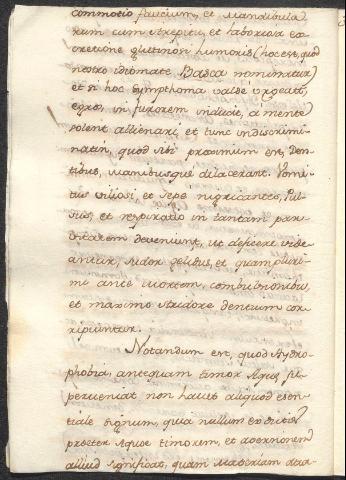 commotio faucium, et Mandibula-
rum cum strepitu, et laboriosa ex-
cretione glutinosi humoris (hoc est, quod
nostro idiomate Basca nominatur)
et si hoc Symphoma valde urgeat,
egros, in furorem inducit, a mente
solent allienari, et tunc indiscrimi-
natim, quod sibi proximum est, Den-
tibus, manibusque dilacerant. Vomi-
tus viliosi, et sepe nigricantes, Pul-
sus, et respiratio in tantam parvi-
vitatem deveniunt, ut deficere vide-
antur, sudor gelidus, et quam pluri-
mi ante mortem, combulsionibus,
et maximo stridore dentium cor-
ripiuntur.
Notandum est, quod Hydro-
phobia, antequam timor Aquæ su-
perveniat non habet aliquod esen-
tiale signum, quia nullum
preter Aquæ timorem, et adversionem
alliud significat, quam Materiam